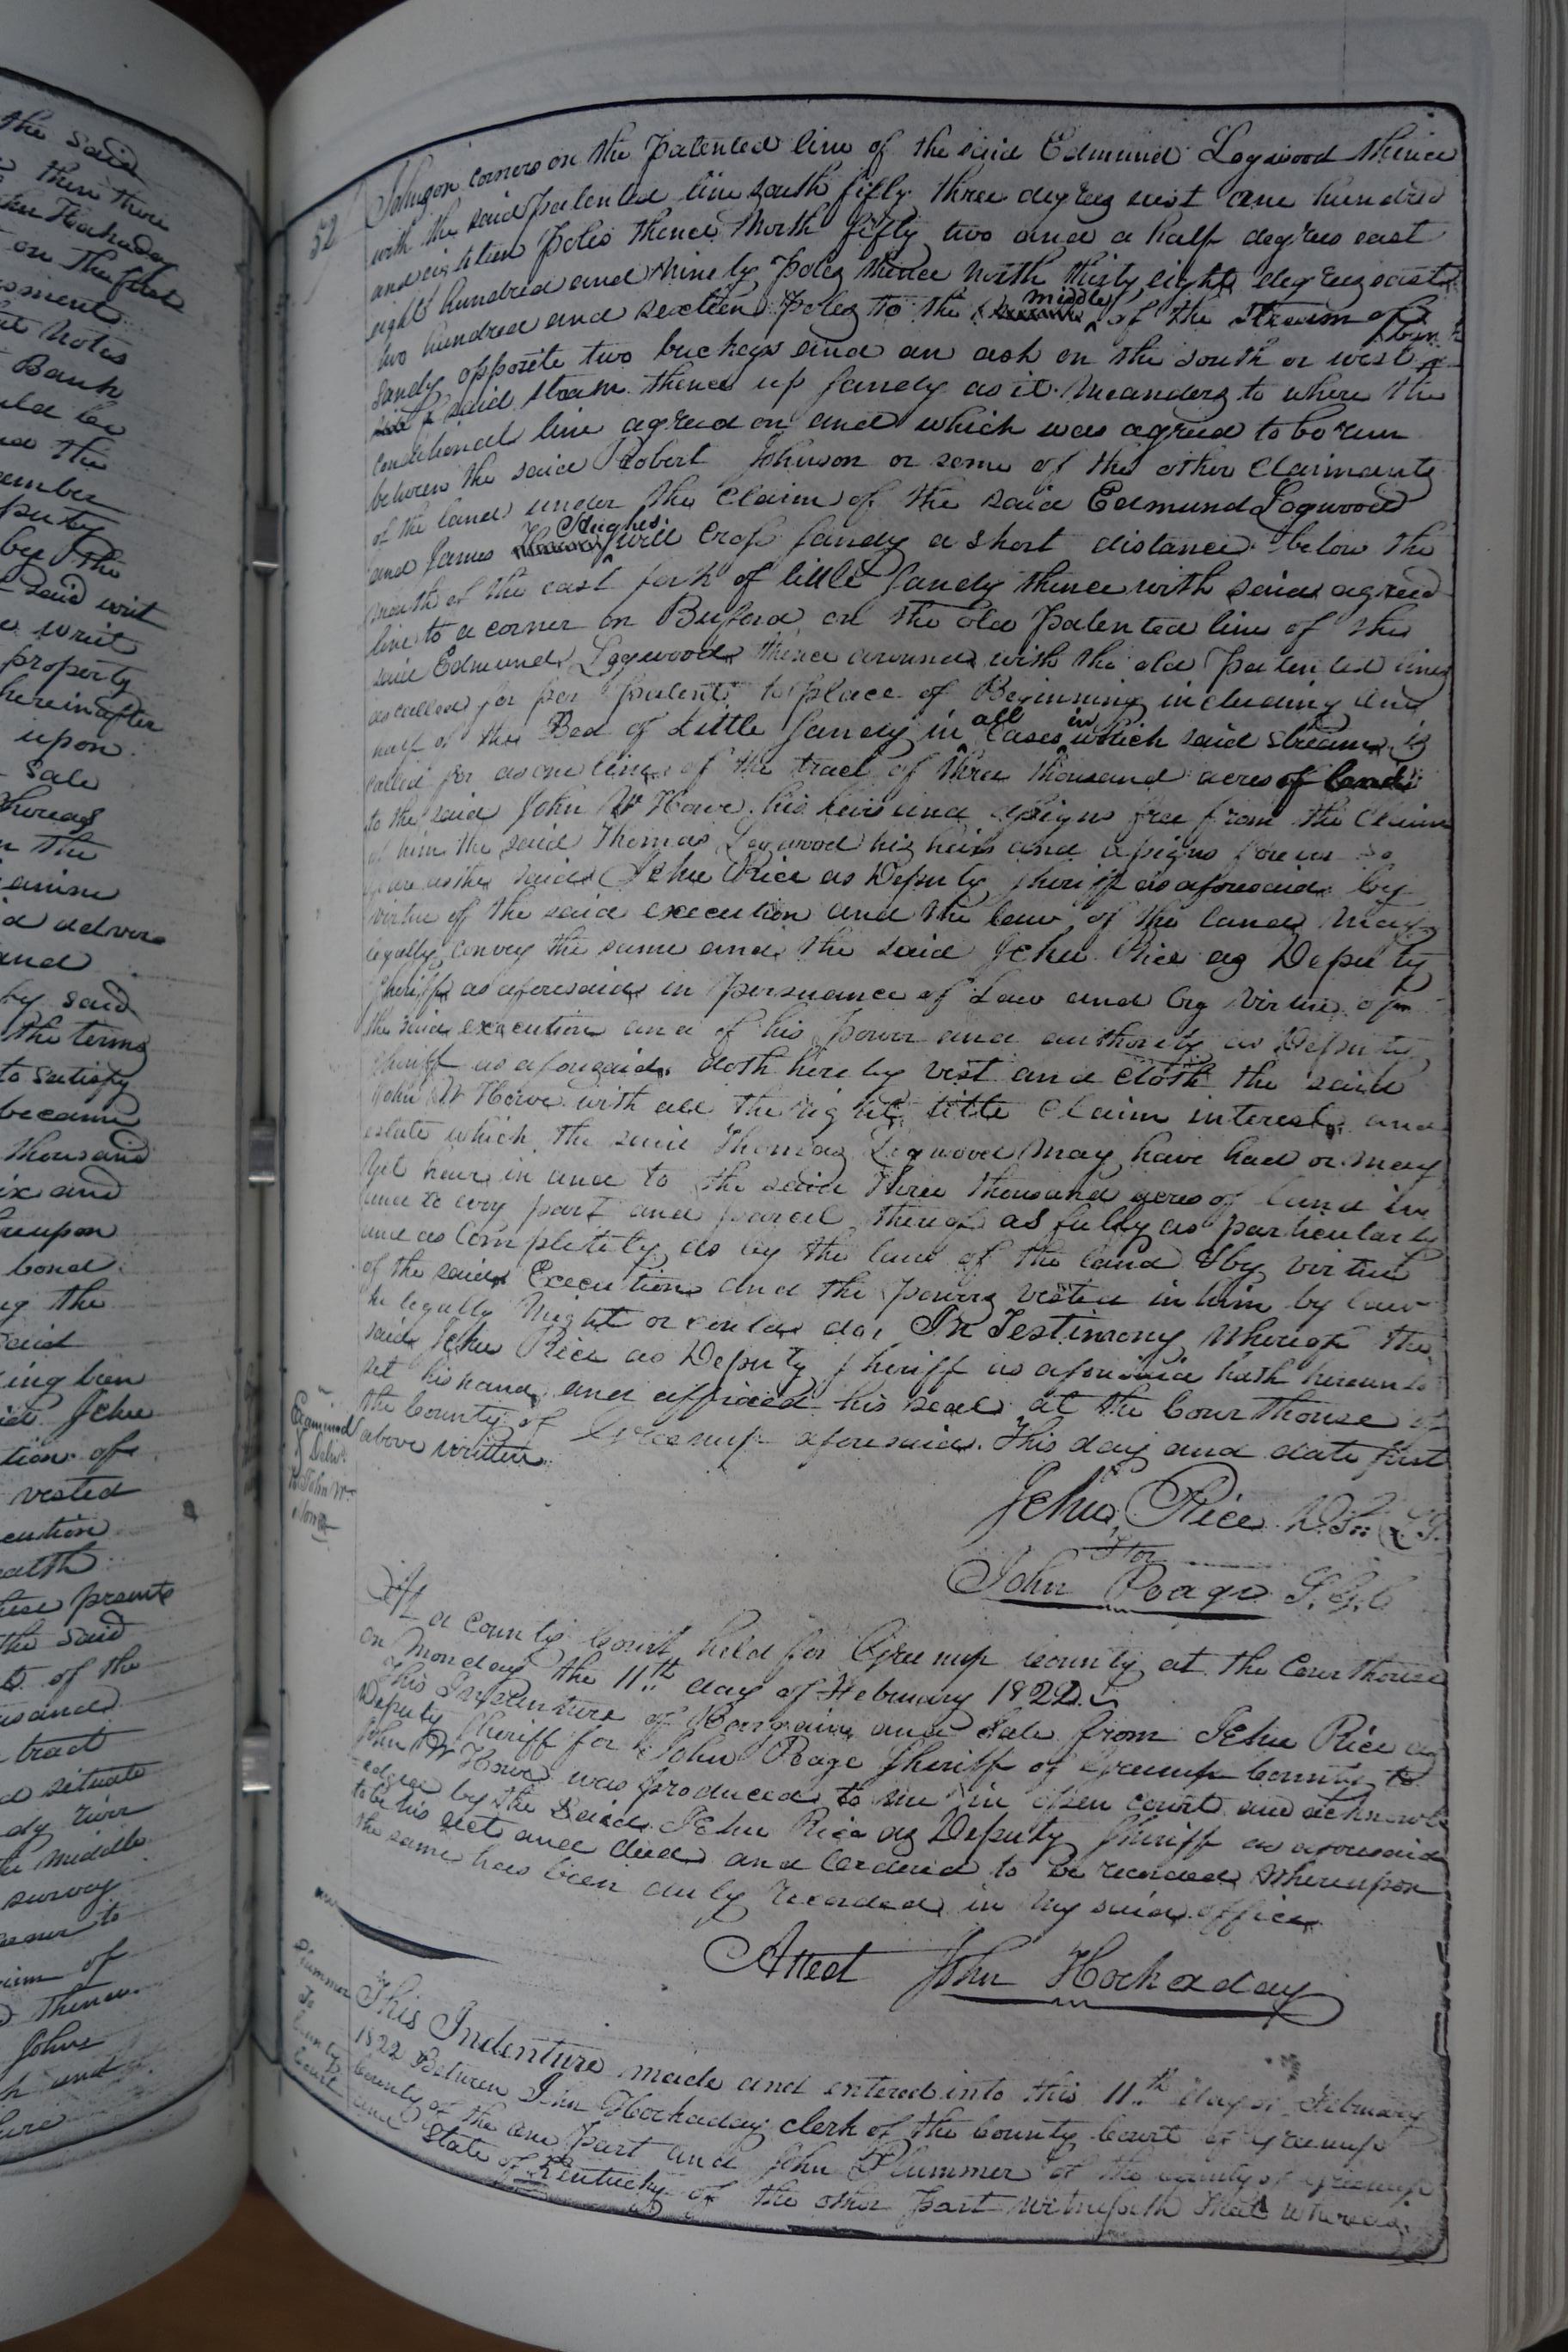 the said
then there
John Hockaday
on the first
Notes
Bank
and the
by the
said writ
writ
property
hereinafter
upon
sale
whereas
in the
deliver
and
by said
the terms
to satisfy
became
thousand
six and
bond
the
said
ing been
Jehu
tion of
vested
cution
these presents
the said
of the
tract
situate
middle
survey
corner to
of
thence
John
and
52
Johnson corners on the Patented line of the said Edmund Logwood thence
with the said Patented line south fifty three degrees east one hundred
and eighteen Poles thence North fifty two and a half degrees east
eight hundred and Ninety Poles thence North thirty eight degrees east
two hundred and sexteen Poles to the middle of the stream of
Sandy opposite two buckeys and an ash on the south or west
side of said stream thence up Sandy as it Meanders to where the
conditional line agreed on and which was agreed to be run
between the said Robert Johnson or some of the other Claimants
of the land under the Claim of the said Edmund Logwood
and James Hughes will cross Sandy a short distance below the
mouth of the east fork of little Sandy thence with said agreed
line to a corner on Buford on the old Patented line of the
said Edmund Logwood thence around with the old Patented lines
as called for per Patent to place of Beginning including one
half of the Bed of Little Sandy in all Cases in which said stream is
called for as one line of the tract of three thousand acres of land
to the said John W Howe his heirs and assigns free from the Claim
of him the said Thomas Logwood his heirs and assigns forever so
far as the said Jehu Rice as Deputy Sheriff as aforesaid by
virtue of the said execution and the law of the land may
legally convey the same and the said Jehu Rice as Deputy
Sheriff as aforesaid in Persuance of Law and by virtue of
the said execution and of his power and authority as Deputy
Sheriff as aforesaid doth hereby vest and cloth the said
John W Howe with all the right title Claim interest and
estate which the said Thomas Logwood may have had or may
yet have in and to the said three thousand acres of land in
and to evry part and parcel thereof as fully as particularly
and as Completely as by the laws of the land & by virtue
of the said Execution and the powers vested in him by law
he legally might or could do, In Testimony Whereof the
said Jehu Rice as Deputy Sheriff as aforesaid hath hereunto
set his hand and affixed his seal at the Courthouse of
the County of Greenup aforesaid. This day and date first
above written
Examined
& Deliv.
to John W
Howe
Jehu Rice D.S. L.S.
for
John Poage S.G.C
At a County Court held for Greenup County at the Courthouse
on Monday the 11th day of February 1822.
This Indenture of Bargain and Sale from Jehu Rice as
Deputy Sheriff for John Poage Sheriff of Greenup County to
John W Howe was produced to me in open court and acknowl
edged by the said Jehu Rice as Deputy Sheriff as aforesaid
to be his act and deed and ordered to be recorded Whereupon
the same has been duly recorded in my said office
Attest John Hockaday
Plummer
To
County
Court
This Indenture made and entered into this 11th day of February
1822 Between John Hockaday clerk of the County Court of Greenup
County of the one part and John Plummer of the County of Greenup
and State of Kentucky of the other part witnesseth that whereas